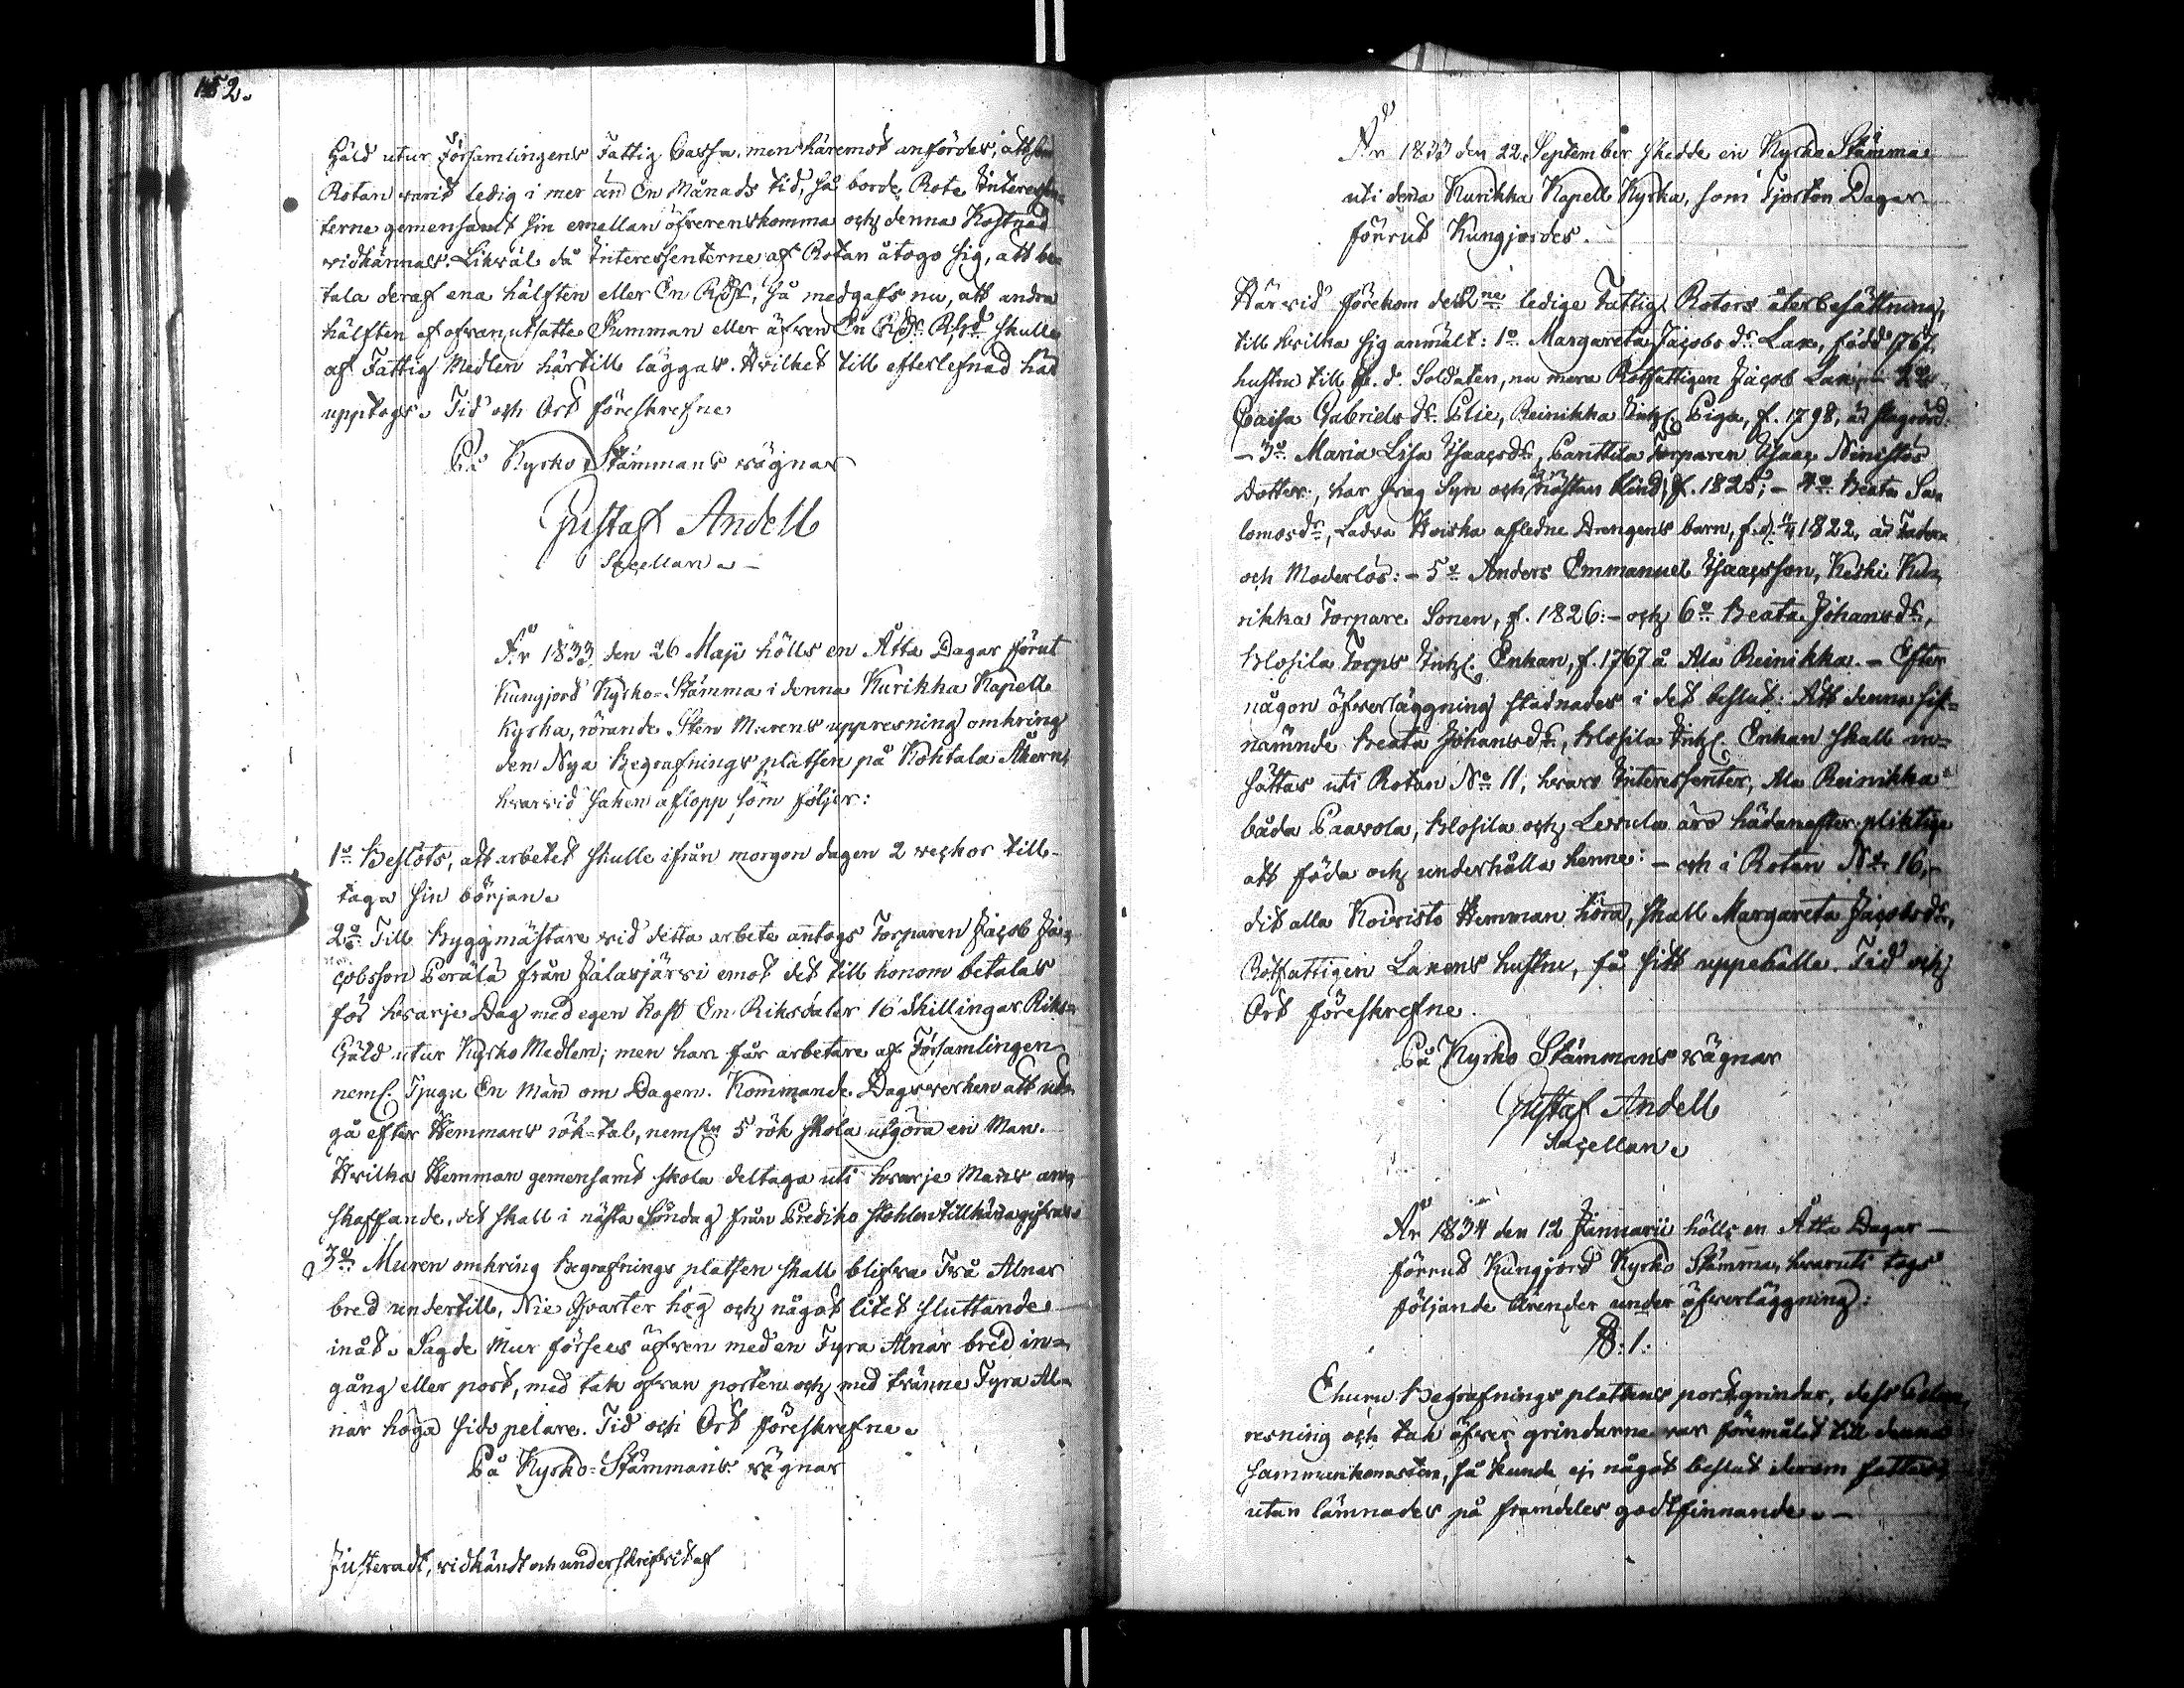 152.
Gäld utur Församlingens Fattig Cassa. men häremot anfördes, att som
Rotan varit ledig i mer än En Månads tid, så borde Rote Interessen-
terne gemensamt sin emellan öfverenskomma och denna Kostnad
vidkännas. Likväl då Interessenterne af Rotan åtogo sig, att be-
tala deraf ena hälften eller En Rdr, så medgafs nu, att andra
hälften af ofvan utsatte Summan eller äfven En Rdr Rgd skulle
af Fattig Medlen härtill läggas. Hvilket till efterlefnad här
upptogs. Tid och Ort föreskrefne
På Kyrko Stämmans vägnar
Gustaf Andell
Sacellan.
År 1833 den 26 Maji hölls en Åtta Dagar förut
Kungjord Kyrko-Stämma i denna Kurikka Kapell
Kyrka, rörande Sten Murens uppresning omkring
den Nya Begrafnings platsen på Kohtala Åkern,
hvarvid saken aflopp som följer:
1o Beslöts, att arbetet skulle ifrån morgon dagen 2 veckor till-
taga sin början.
2o Till Byggmästare vid detta arbete antogs Torparen Jacob Ja-
cobsson Perälä från Jalasjärvi emot det till honom betalas
för hvarje Dag med egen Kost En Riksdaler 16 Skillingar Riks-
Gäld utur Kyrko Medlen; men han får arbetare af Församlingen
neml. Tjugu En Man om Dagen. Kommande Dagsverken att ut-
gå efter Hemmans rök-tal, nemln 5 rök skola utgöra en Man.
Hvilka Hemman gemensamt skola deltaga uti hvarje Mans an-
skaffande, det skall i nästa Söndag från Prediko stohlen tillkännagifvas
3o Muren omkring Begrafnings platsen skall blifva Två Alnar
bred undertill, Nie Qvarter hög och något litet sluttande
inåt. Sagde Mur försees äfven med en Fyra Alnar bred in-
gång eller port, med tak ofvan porten och med tvänne Fyra Al-
nar höga sido pelare. Tid och Ort föreskrefne.
På Kyrko-Stämmans vägnar
Justeradt, vidkändt och underskrifvit af
År 1833 den 22 September skedde en Kyrko Stämma
uti dena Kurikka Kapell Kyrka, som Fjorton Dagar
förrut Kungjordes.
Härvid förekom de 2ne ledige Fattig Rotors återbesättning,
till hvilka sig anmält: 1o Margareta Jacobs dr Lax, född 1767
hustru till f.d. Soldaten, nu mera Rotfattigen Jacob Lax, - 2o
Caisa Gabriels dr Plie, Reinikka Inhs. Piga, f. 1798, är slagrörd:
- 3o Maria Lisa Isaacsdr, Panttila Torparen Isaac Ninistös
Dotter, har svag Syn och nästan blind, f. 1825; - 4o Beata Sa-
lomosdr, Ladva Koiska aflidne Drengens barn, f. 1822, är Fader
och Moderlös: - 5o Anders Emmanuel Isaacsson, Keski Ku-
rikka Torpare Sonen, f. 1826: - och 6o Beata Johansdr,
Klosila Torps Inhs. Enkan, f. 1767 å Ala Reinikka. - Efter
någon öfverläggning stadnades i det beslut: Att denna sist-
nämnde Beata Johansdr, Klosila Inhs. Enkan skall in-
sättas uti Rotan No 11, hvars Interessenter, Ala Reinikka
båda Paavola, Klosila och Levula äro hädanefter pliktige
att föda och underhålla henne: - och i Rotan No 16,
dit alla Koivisto Hemman höra, skall Margareta Jacobsdr,
Rotfattigen Laxens hustru, få sitt uppehälle. Tid och
Ort föreskrefne.
På Kyrko Stämmans vägnar
Gustaf Andell
Sacellan.
År 1834 den 12 Januarii hölls en Åtta Dagar
förrut Kungjord Kyrko Stämma, hvaruti togs
följande ärender under öfverläggning:
§. 1.
Ehuru Begrafnings platsens port grindar, dess
resning och tak öfver grindarne var föremålet till denna
sammankomsten, så kunde ej något beslut derom fattas,
utan lämnades på framdeles godtfinnande. -